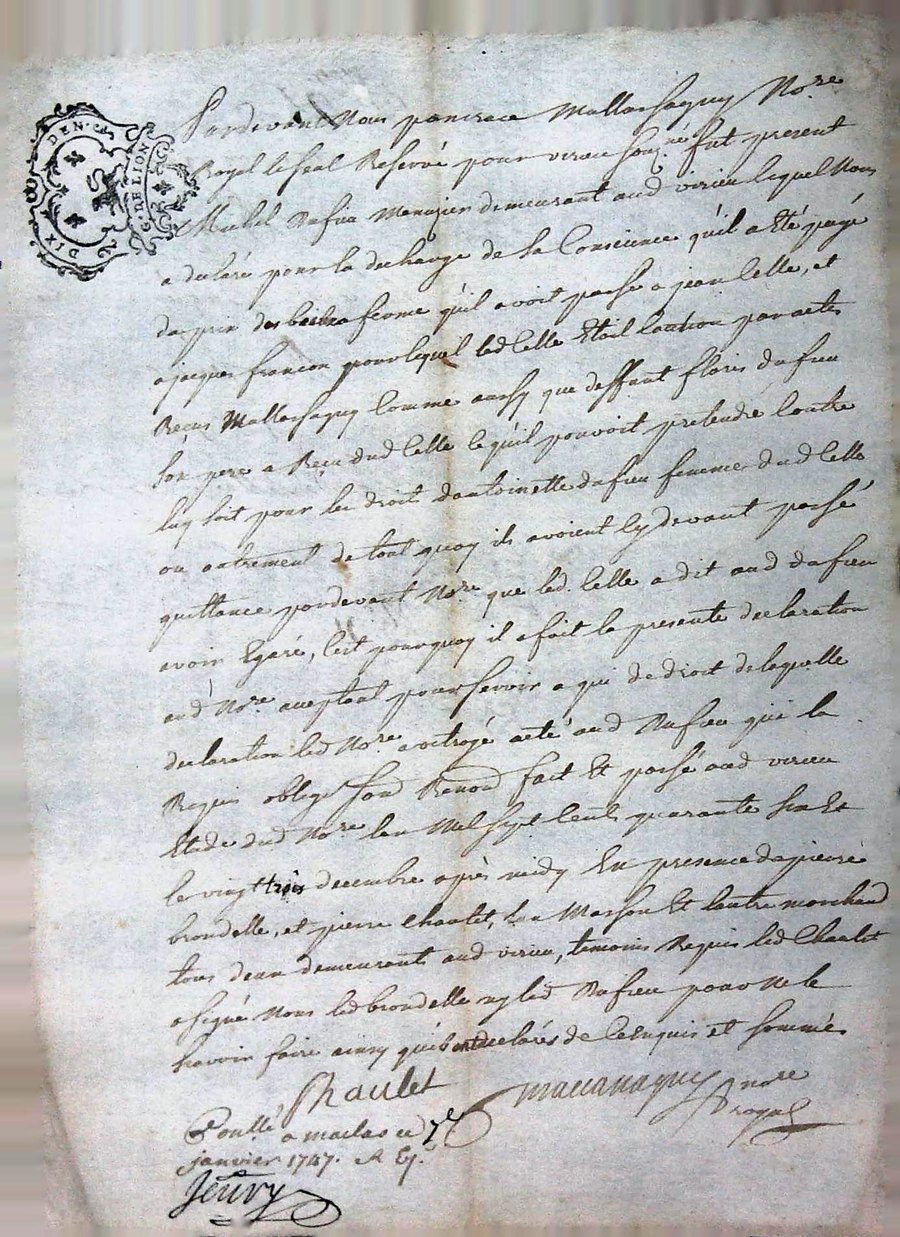 DIX DEN. ers
G. DE LION
Pardevant Nous pancrace Mallassagny No.re
Royal le seul Reservé pour virieu sousné fut present
Michel Dufieu Menuzier demeurant aud virieu lequel Nous
a declaré pour la decharge de sa Conscience qu'il a Eté payé
du prix des ferme qu'il avoit passé a jean Celle, et
a jacques francon pour lequel led Celle Etoit Caution par actes
Reçus Mallassagny Comme aussy que deffunt floris dufieu
son pere a Reçu dud Celle ce qu'il pouvoit pretendre Contre
luy soit pour les droit d'antoinette dufieu femme dud Celle
ou autrement de tout quoy ils avoient Cy devant passé
quittance pardevant No.re que led. Celle a dit aud dufieu
avoir Egaré, C'est pourquoy il a fait la presente declaration
aud No.re acceptant pour servir a qui de droit de laquelle
declaration led No.re a octroyé acte aud Dufieu qui l'a
Requis obligé soud Renond fait Et passé aud virieu
Etude dud No.re l'an Mil sept Cents quarante six Et
le vingt trois decembre après midy En presence de pierre
brondelle, et pierre Chaulet, l'un Masson Et l'autre marchand
tous deux demeurants aud virieu, temoins Requis led Chaulet
a signé Nous led brondelle ny led Dufieu pour Ne le
scavoir faire ainsy qu'ils ont declarés de Ce Enquis et sommés
Chaulet
Mallassagny nore
royal
Conllé a maclas ce 7e
janvier 1747. R Ey.
Jeury